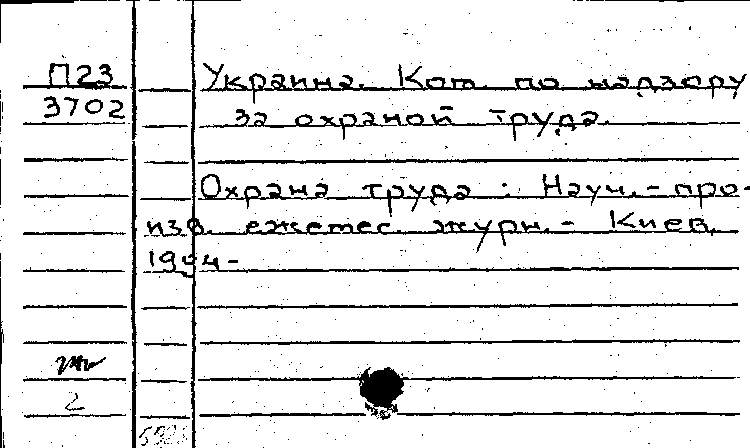 П23 Украина. Ком. по надзору
3702 за охраной труда.
Охрана труда : Науч.-про-
изв. ежемес. журн. - Киев,
1994-
2